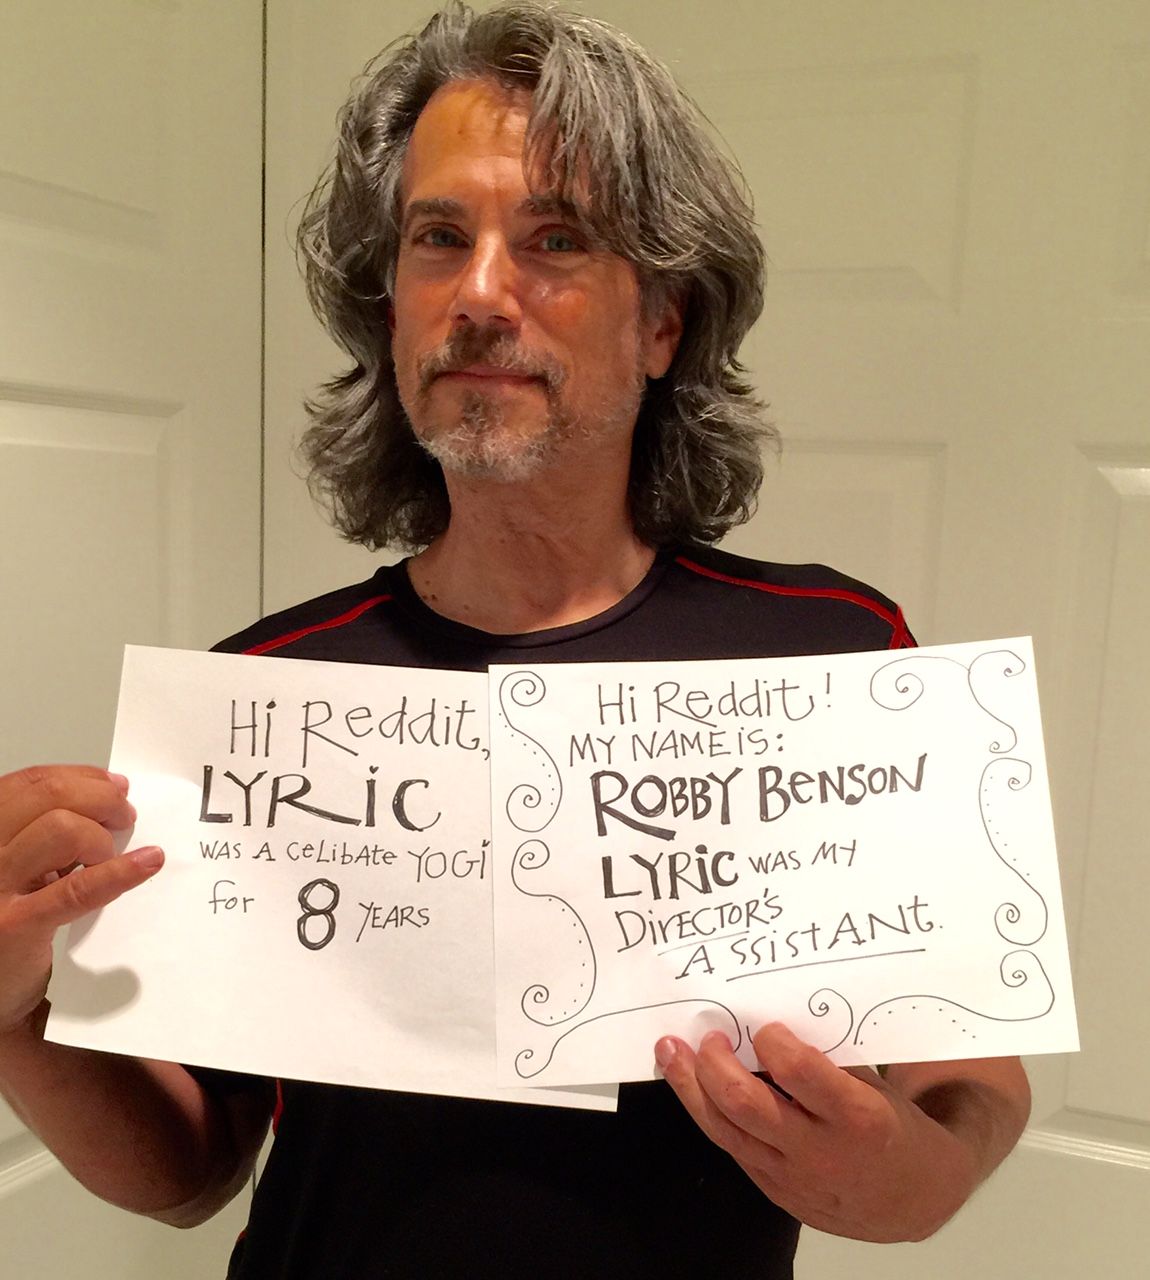 Hi Reddit,
LYRiC
WAS A CeLibAte YOGi
for 8 YEARS
Hi Reddit!
MY NAME iS:
ROBBY BeNSON
LYRiC WAS MY
DirECTOR'S
ASSiStANt.